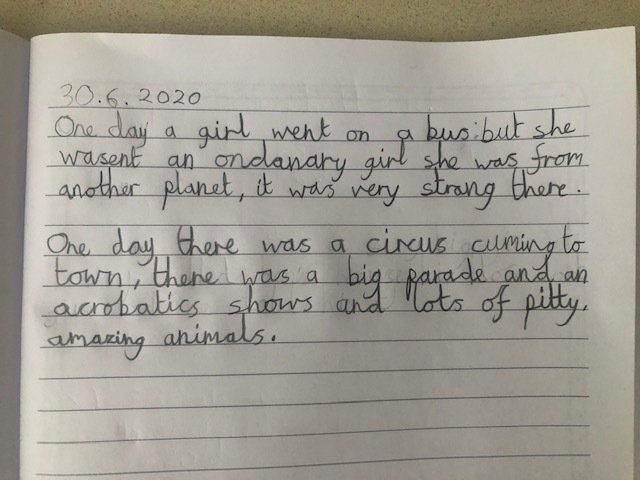 30.6.2020
One day a girl went on a bus: but she
wasent an ondanary girl she was from
another planet, it was very strang there.
One day there was a circus cuming to
town, there was a big parade and an
acrobatics shows and lots of pitty,
amazing animals.